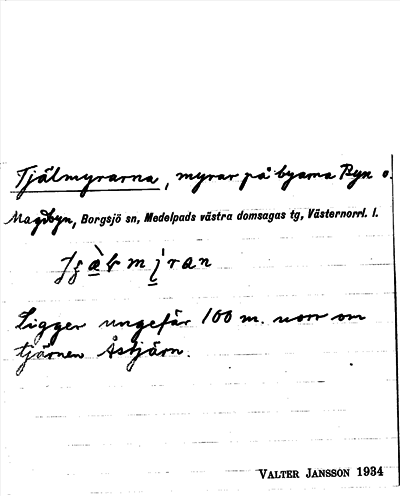 Tjälmyrarna, myrar på byarna Byn o.
Magdbyn, Borgsjö sn, Medelpads västra domsagas tg, Västernorrl. l.
Ligger ungefär 100 m. norr om
tjärnen Åstjärn.
VALTER JANSSON 1934